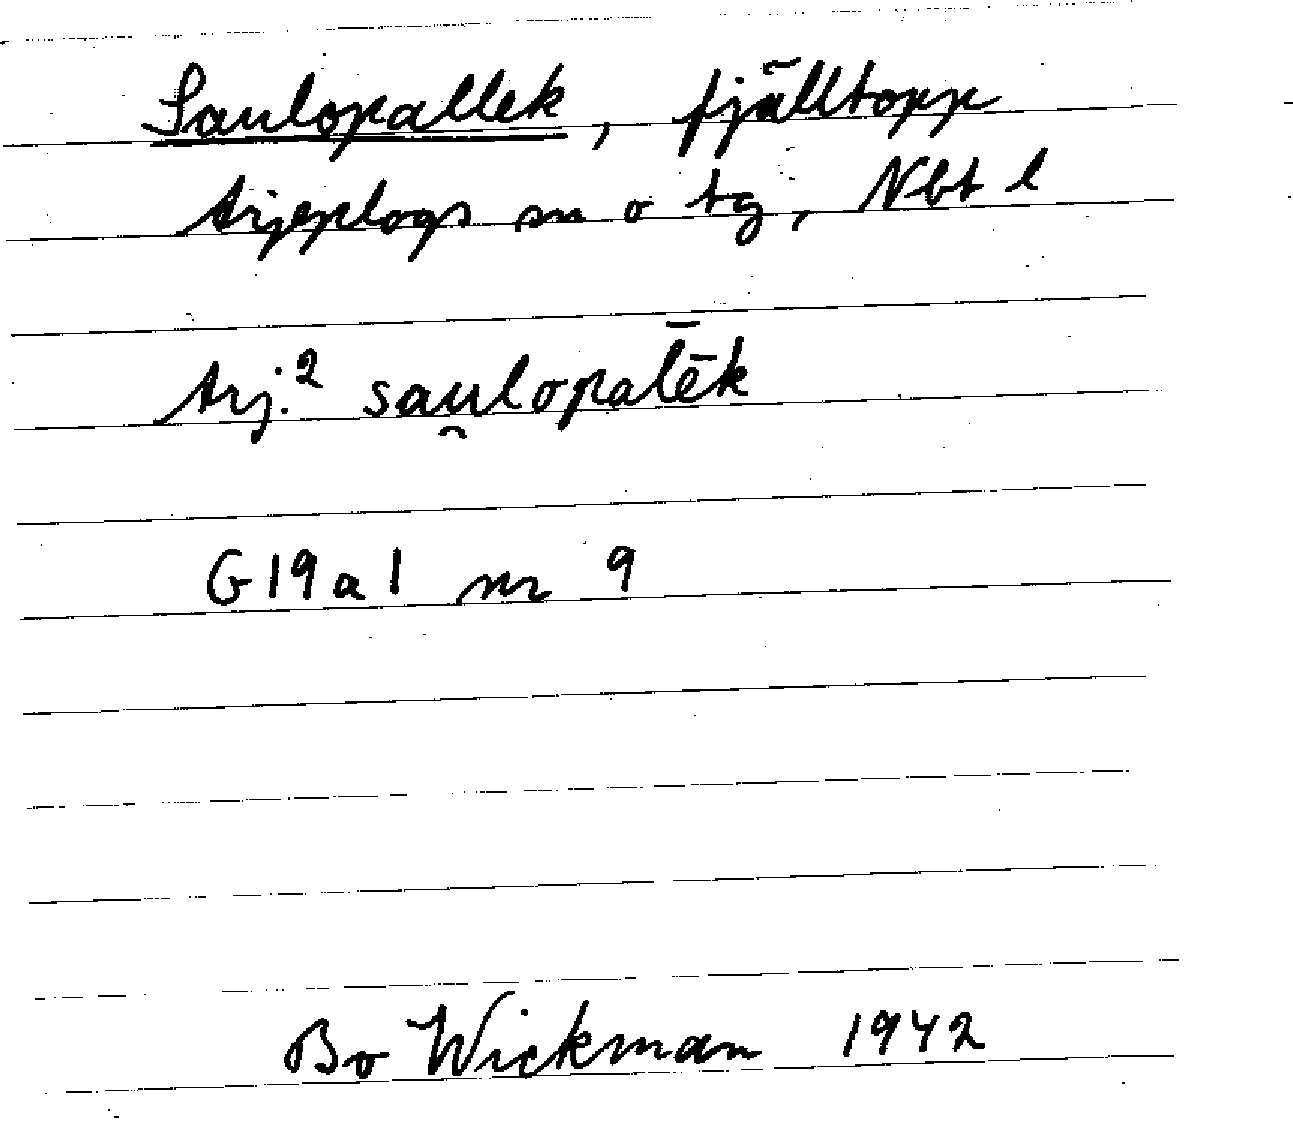 Saulopallek, fjälltopp
Arjeplogs sn o tg, Nbt l
Arj.² sau̯lopal̄ēk
G19a1 nr 9
Bo Wickman 1942